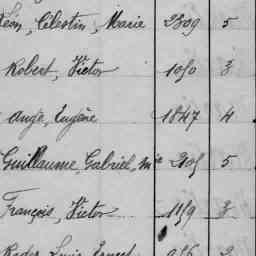 Léon, Célestin, Marie 2309 5
Robert, Victor 1050 3
Ange, Eugène 1847 4
Guillaume, Gabriel, Mie 2105 5
François, Victor 1159 3
Louis Ernest 956